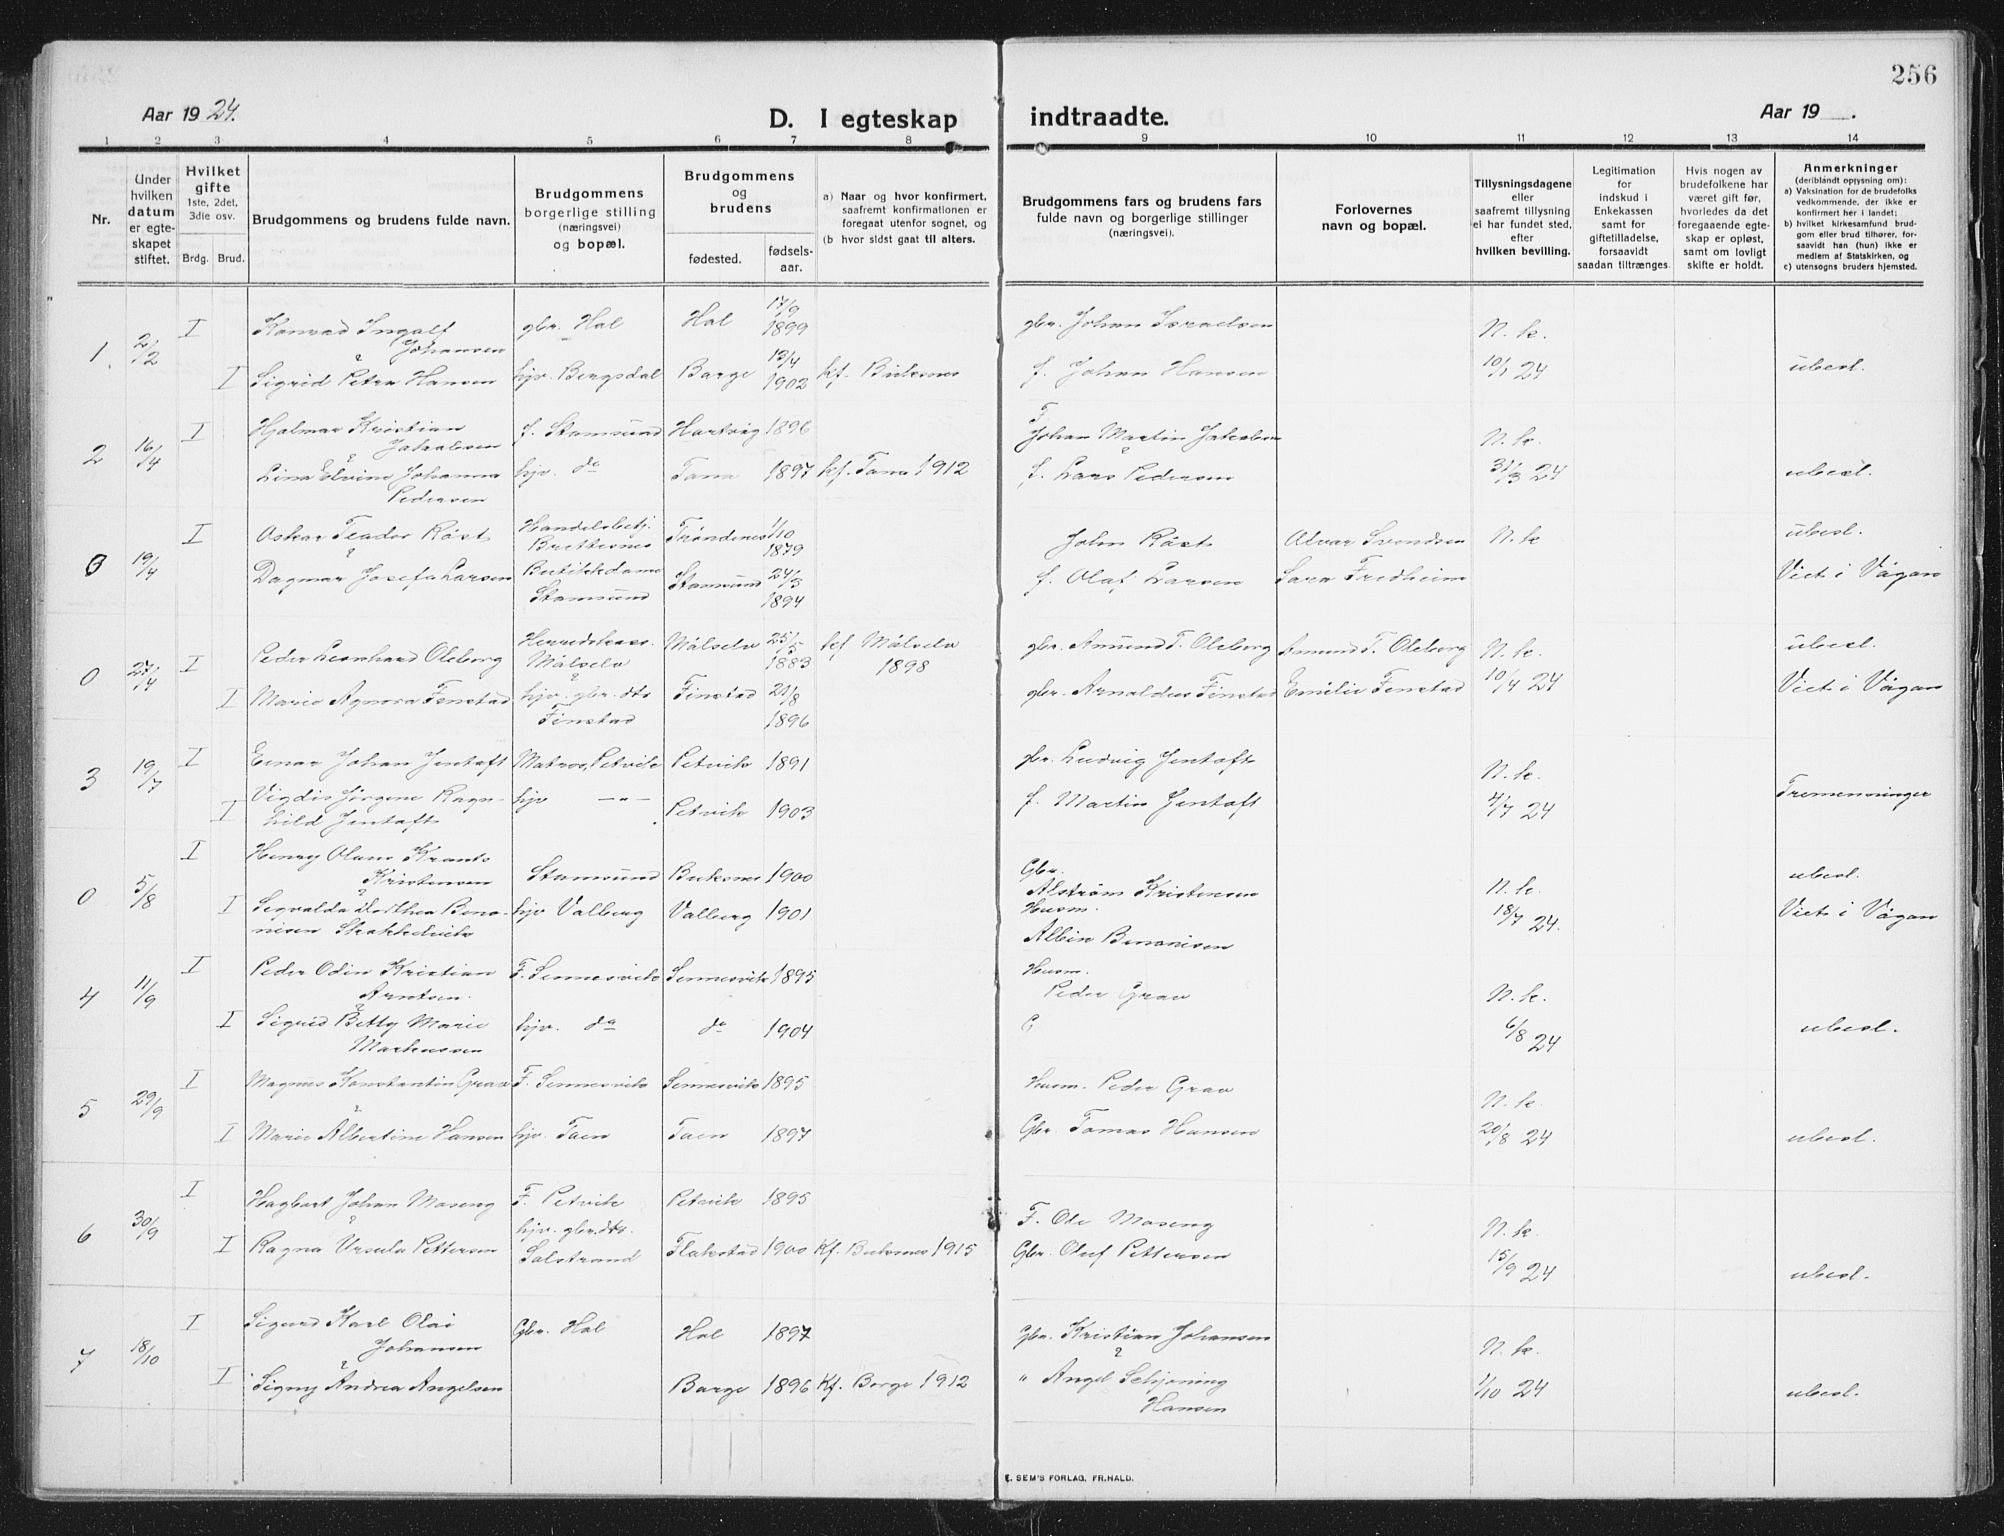 256
Aar 1924.
D. I egteskap indtraadte.
Aar 19 .
1 2 3 4 5 6 7 8 9 10 11 12 13 14
Nr.
Under hvilken datum er egteskapet stiftet.
Hvilket gifte 1ste, 2det, 3die osv.
Brdg. Brud.
Brudgommens og brudens fulde navn.
Brudgommens borgerlige stilling (næringsvei) og bopæl.
Brudgommens og brudens
fødested.
fødsels-aar.
a) Naar og hvor konfirmert, saafremt konfirmationen er foregaat utenfor sognet, og
(b hvor sidst gaat til alters.
Brudgommens fars og brudens fars fulde navn og borgerlige stillinger (næringsvei).
Forlovernes navn og bopæl.
Tillysningsdagene eller saafremt tillysning ei har fundet sted, efter hvilken bevilling.
Legitimation for indskud i Enkekassen samt for giftetilladelse, forsaavidt saadan tiltrænges
Hvis nogen av brudefolkene har været gift før, hvorledes da det foregaaende egteskap er opløst, samt om lovligt skifte er holdt.
Anmerkninger
(deriblandt opiysning om):
a) Vaksination for de brudefolks vedkommende, der ikke er konfirmert her i landet;
b) hvilket kirkesamfund brudgom eller brud tilhører, forsaavidt han (hun) ikke er medlem af Statskirken, og
c) utensogns bruders hjemsted.
1 2/2 I Konrad Ingolf Johansen gbr. Hol Hol 17/9 1899 gbr. Johan Israelsen N. k.
& I Sigrid Petra Hansen hjv. Bergsdal Borge 13/4 1902 kf. Buksnes f. Johan Hansen 10/1 24 ubesl.
2 16/4 I Hjalmar Kristian Jakobsen f. Stamsund Hartvig 1896 F. Johan Martin Jakobsen N. k.
& Lina Elvine Johanna Pedersen hjv. do Tana 1897 kf. Tana 1912 f. Lars Pedersen 31/3 24 ubesl.
0 19/4 I Oskar Teodor Røst Handelsbetj. Brettesnes Trondenes 1/10 1879 John Røst Alvar Svendsen N. k ubesl.
& Dagmar Josefa Larsen Butikkdame Stamsund Stamsund 24/3 1894 f. Olaf Larsen Sara Fredheim Viet i Vågan
0 27/4 I Peder Leonhard Olsborg Herredskass. Målselv Målselv 25/5 1883 kf Målselv 1898 gbr. Amund T. Olsborg Amund T. Olsborg N. k. ubesl.
I Marie Agnora Finstad hjv. gbr. dtr Finstad Finstad 21/8 1896 gbr. Arnoldus Finstad Emilie Finstad 10/4 24 Viet i Vågan
3 19/7 I Einar Johan Jentoft Matros, Petvik Petvik 1891 gbr. Ludvig Jentoft N. k.
I Vigdis Jørgine Ragnhild Jentoft hjv —"— Petvik 1903 f. Martin Jentoft 4/7 24 Tremenninger
0 5/8 I Henry Olaus Krants Kristensen Stamsund Buksnes 1900 Gbr. Alstrøm Kristensen N. k. ubesl.
& I Segvalda Dorthea Benonisen Skakkelvik hjv Valberg Valberg 1901 Husm. Albin Benonisen 18/7 24. Viet i Vågan
4 11/9 I Peder Odin Kristian Arntsen F. Sennesvik Sennesvik 1895 Husm. Peder Grav N. k.
& I Sigrid Betty Marie Markussen hjv. do do 1904 6/8 24 ubesl.
5 29/9 I Magnus Konstantin Grav F. Sennesvik Sennesvik 1895 Husm. Peder Grav N. k.
& I Marie Albertine Hansen hjv. Taen Taen 1897 Gbr. Tomas Hansen 20/8 24 ubesl.
6 30/9 I Hagbart Johan Moseng F. Petvik Petvik 1895 F. Ole Moseng N. k.
& I Ragna Ursula Pettersen hjv. gbr.dtr. Solstrand Flakstad 1900 Kf. Buksnes 1915 Gbr. Oluf Pettersen 15/9 24 ubesl.
7 18/10 I Sigurd Karl Olai Johansen Gbr. Hol Hol 1897 Gbr. Kristian Johansen N. k.
& I Signy Andrea Angelsen Borge 1896 Kf. Borge 1912 " Angel Schjøning Hansen 1/10 24 ubesl.
E. SEM'S FORLAG, FR.HALD.